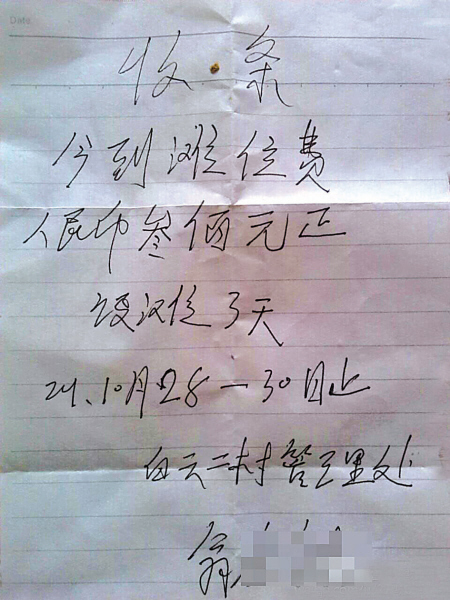 Date
收条
今到滩位费
人民币叁佰元正
设滩位3天
10月28—30日止
白云二村管理处
翁